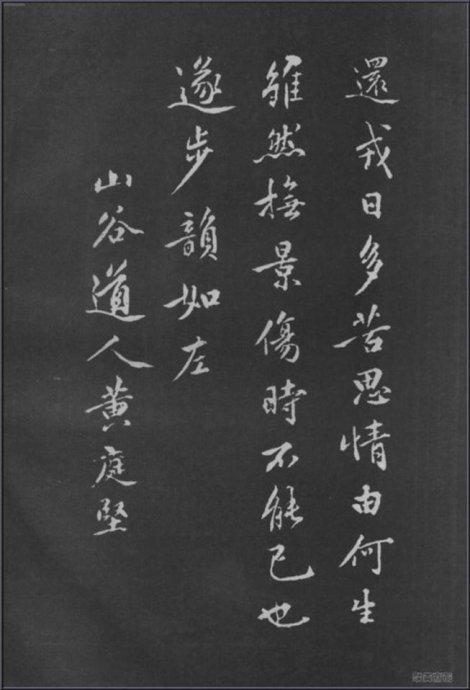 還戎日多苦思情由何生
雖然撫景傷時不能已也
遂步韻如左
山谷道人黄庭堅